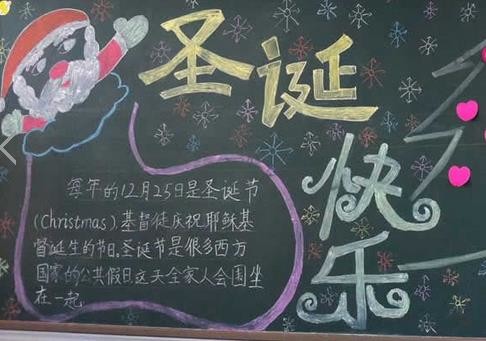 圣诞
快乐
每年的12月25日是圣诞节
(Christmas)基督徒庆祝耶稣基
督诞生的节日,圣诞节是很多西方
国家的公共假日这天全家人会围坐
在一起.